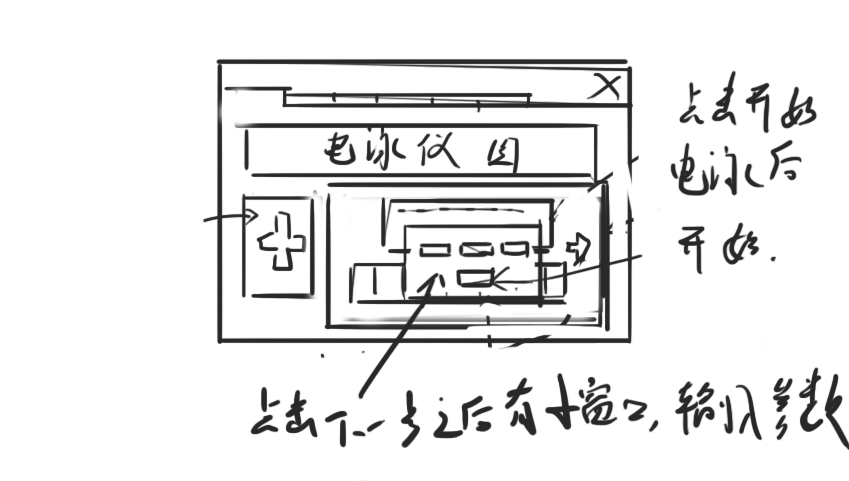 电泳仪 图
点击开始
电泳后
开始.
点击下一步之后有小窗口,输入参数